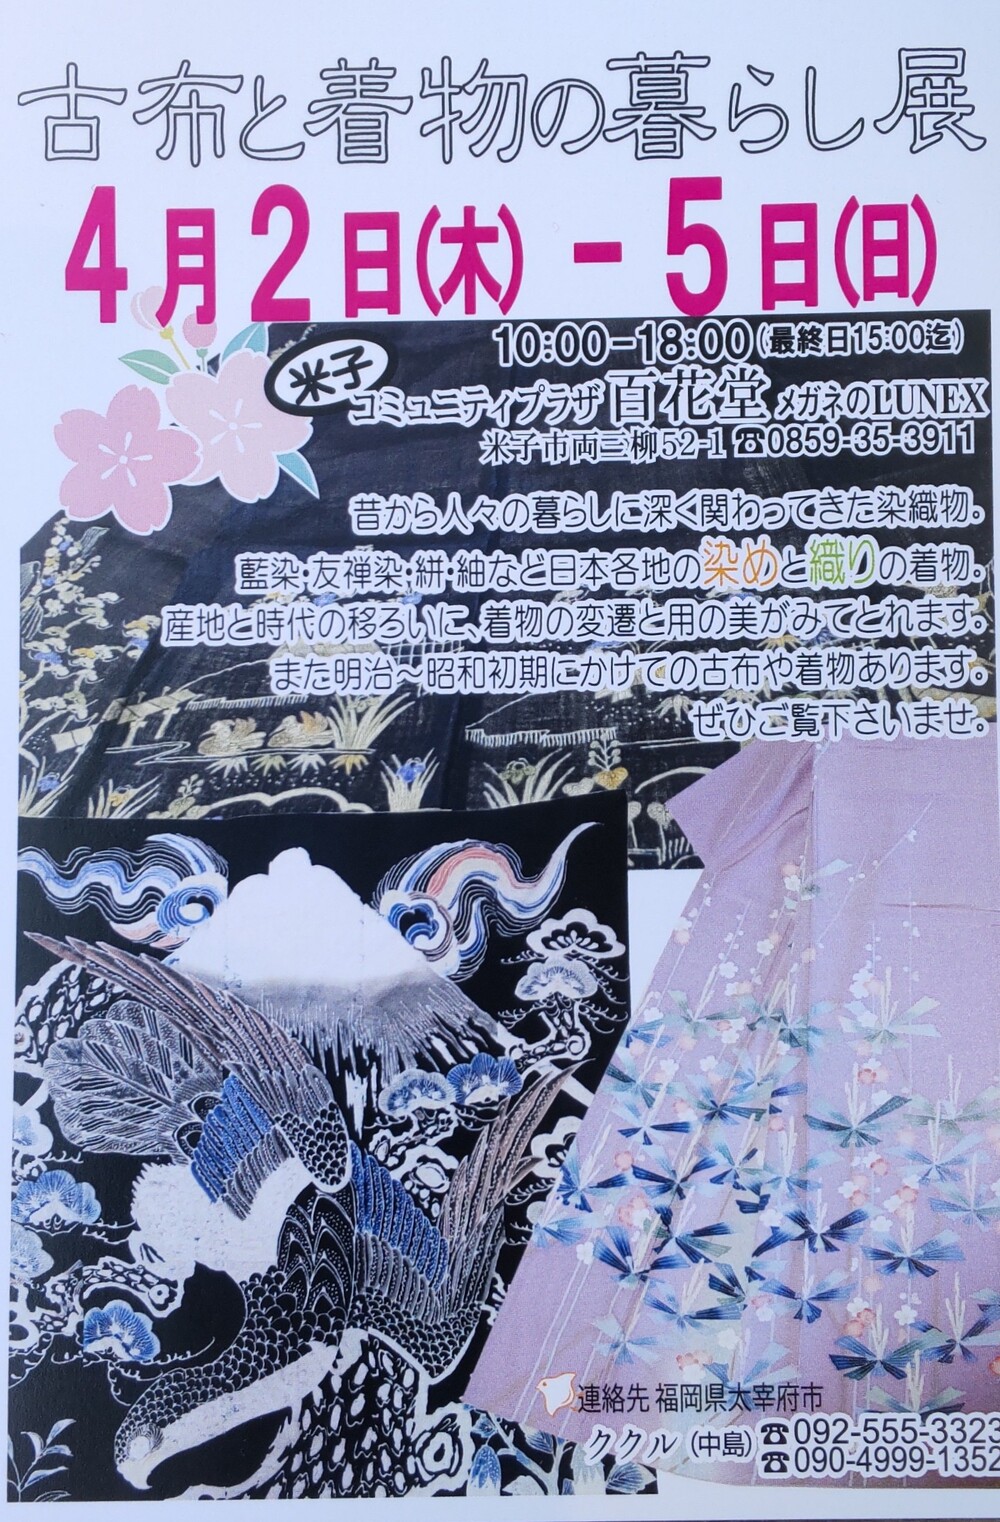 古布と着物の暮らし展
4月2日(木)-5日(日)
10:00-18:00(最終日15:00迄)
米子
コミュニティプラザ 百花堂 メガネのLUNEX
米子市両三柳52-1 ☎0859-35-3911
昔から人々の暮らしに深く関わってきた染織物。
藍染・友禅染・絣・紬など日本各地の染めと織りの着物。
産地と時代の移ろいに、着物の変遷と用の美がみてとれます。
また明治〜昭和初期にかけての古布や着物あります。
ぜひご覧下さいませ。
連絡先 福岡県太宰府市
ククル (中島) ☎092-555-3323
☎090-4999-1352